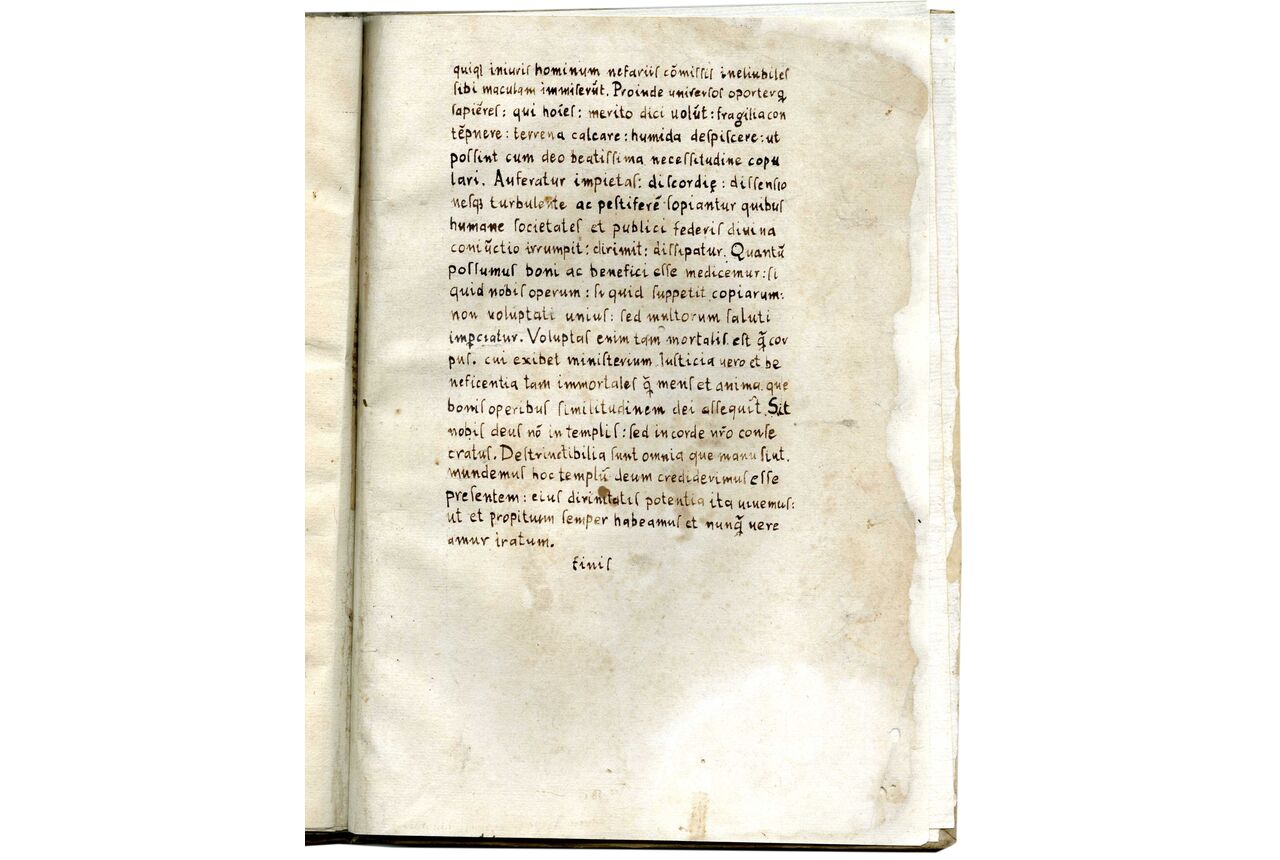 quiqꝫ iniuriſ hominum nefariiſ cōmiſſiſ ineluibileſ
ſibi maculam immiſerūt. Proinde univerſoſ oporter
ſapiēreſ: qui hoīeſ: merito dici uolūt: fragilia con
tēpnere: terrena calcare: humida deſpiſcere: ut
poſſint cum deo beatiſſima neceſſitudine copu
lari. Auferatur impietaſ: diſcordię: diſſenſio
neſqꝫ turbulente ac peſtiferē ſopiantur quibuſ
humane ſocietateſ et publici federiſ divina
coniūctio irrumpit: dirimit: diſſipatur. Quantū
poſſumuſ boni ac benefici eſſe medicemur: ſi
quid nobiſ operum: ſi quid ſuppetit copiarum:
non voluptati uniuſ: ſed multorum ſaluti
impciatur. Voluptaſ enim tam mortaliſ eſt q̄ cor
puſ. cui exibet miniſterium. Iuſticia uero et be
neficentia tam immortaleſ q̄ menſ et anima que
boniſ operibuſ ſimilitudinem dei aſſequit. Sit
nobiſ deuſ nō in templiſ: ſed in corde nr̄o conſe
cratuſ. Deſtructibilia ſunt omnia que manu ſiut.
mundemuſ hoc templū deum crediderimuſ eſſe
preſentem: eiuſ divinitatiſ potentia ita uiuemuſ:
ut et propitium ſemper habeamuſ et nunq̄ vere
amur iratum.
finiſ